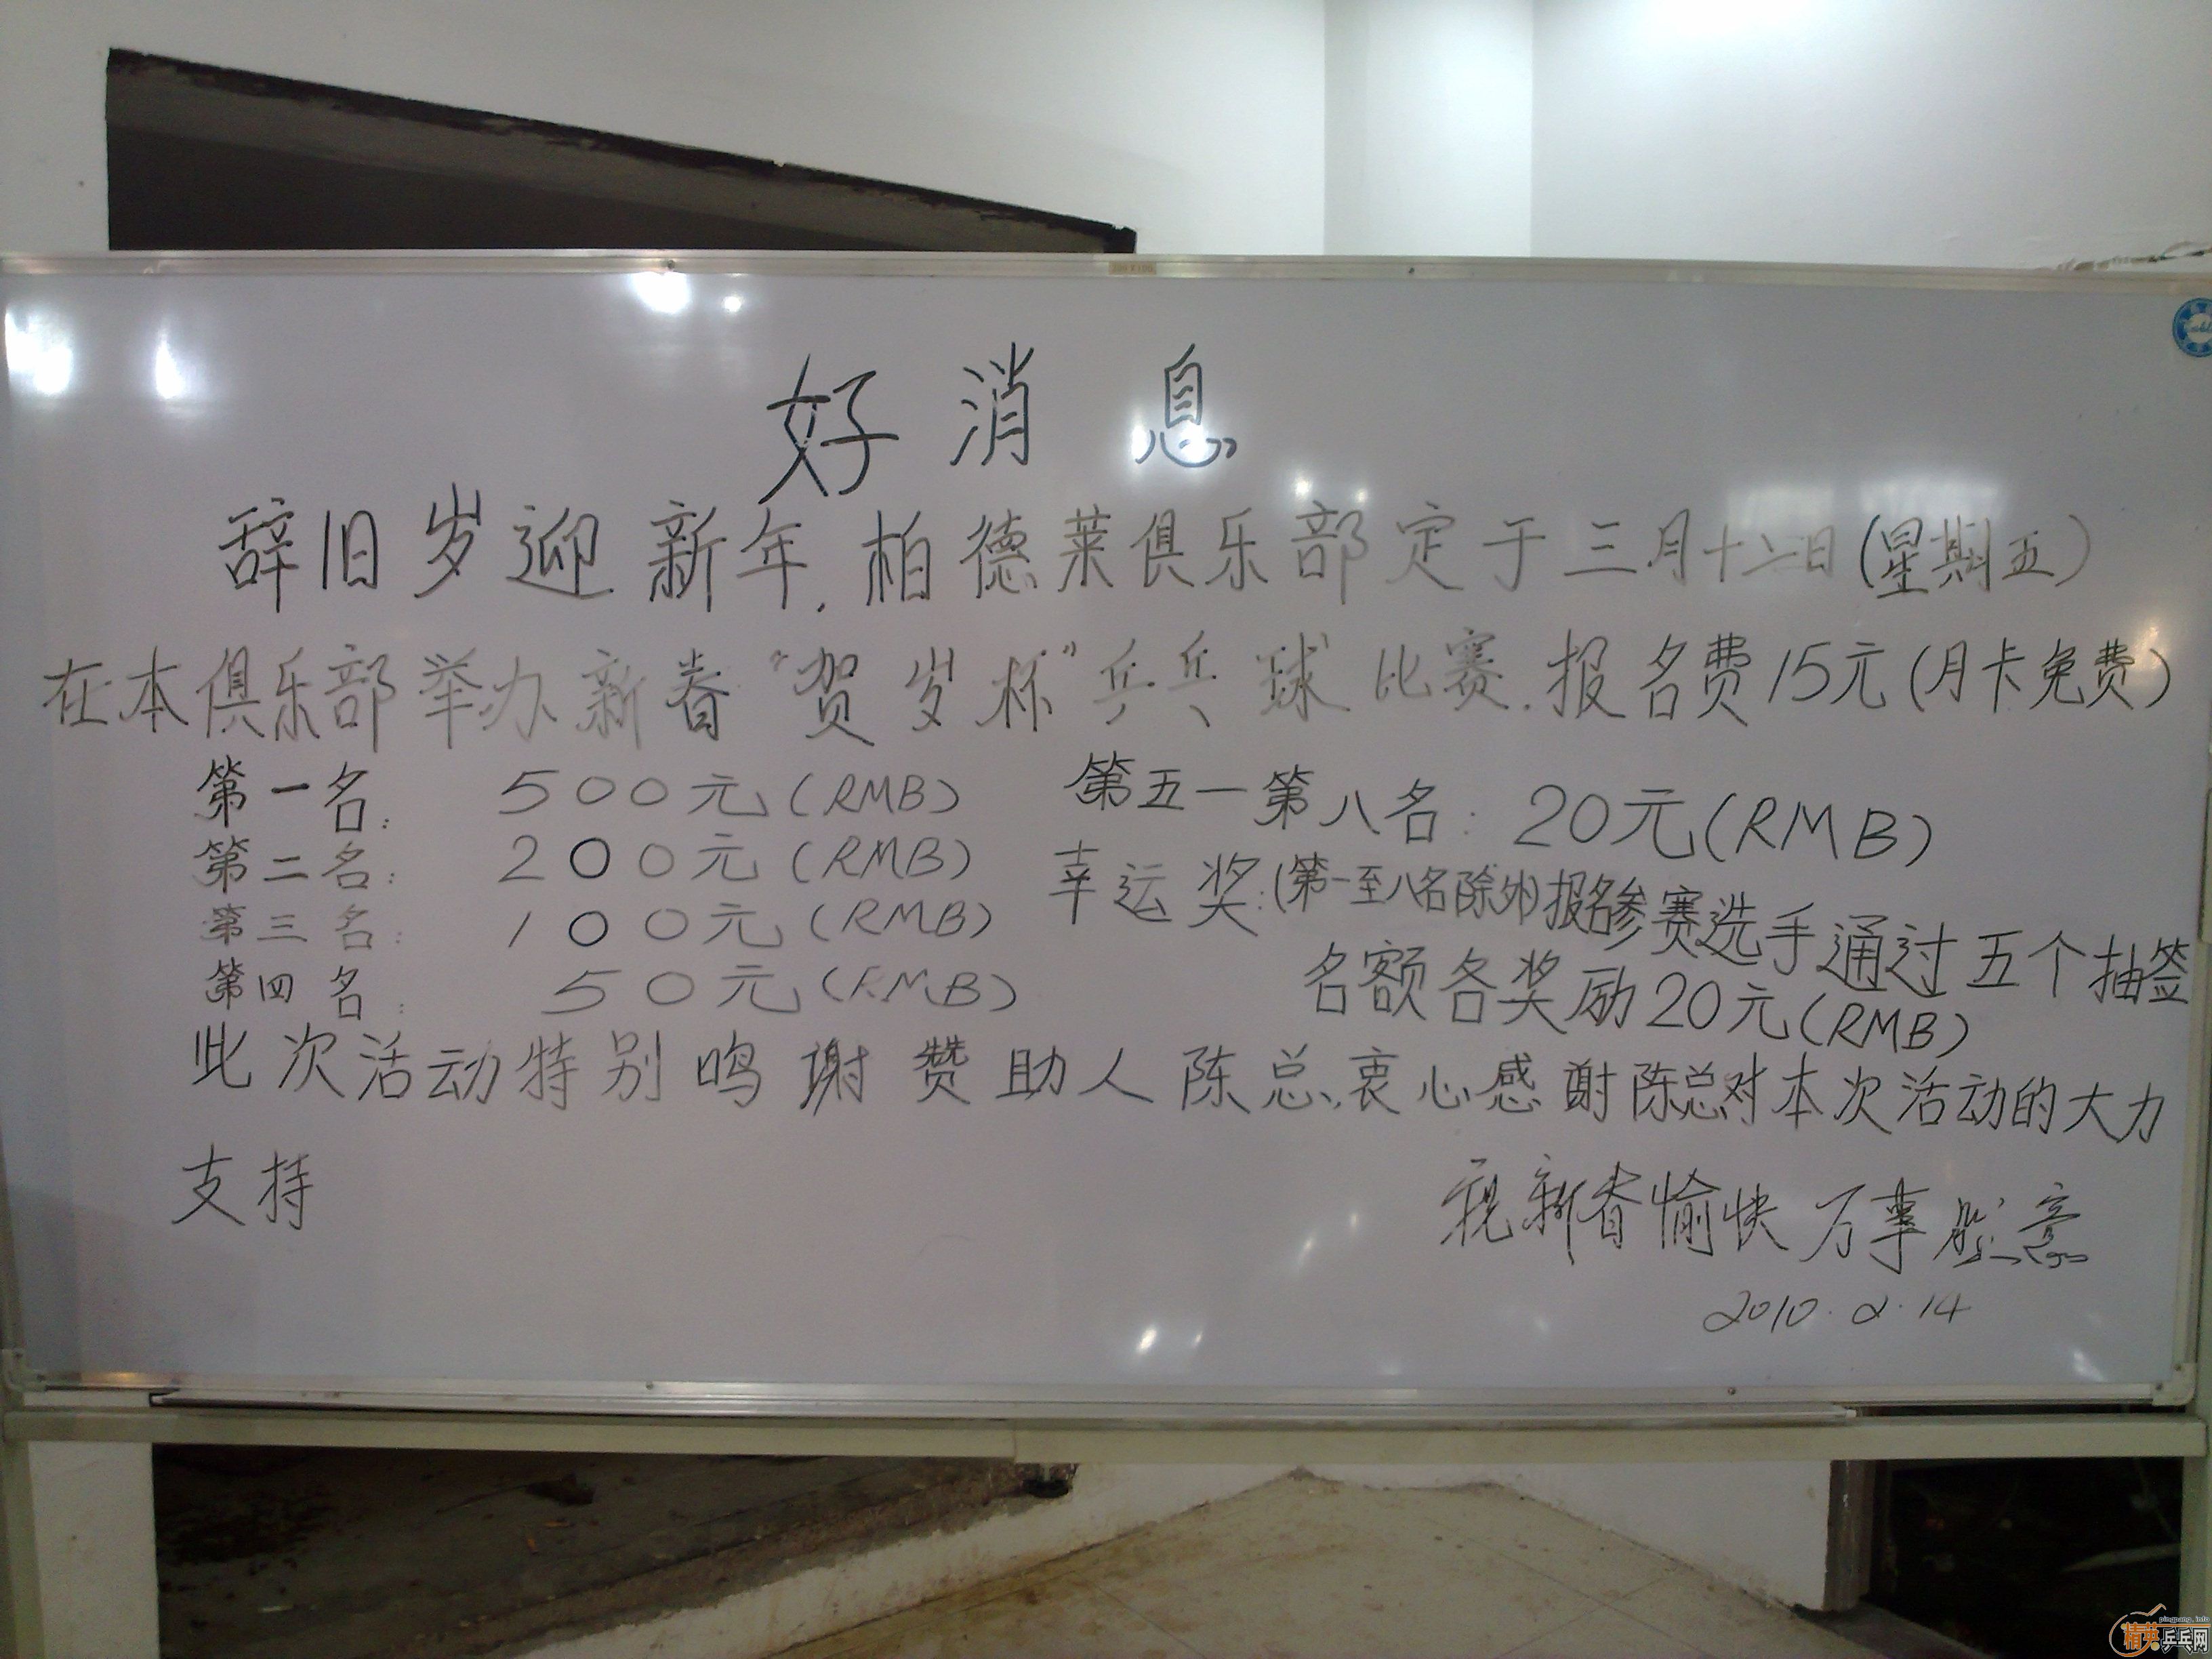 好消息
辞旧岁迎新年.柏德莱俱乐部定于三月十二日(星期五)
在本俱乐部举办新春"贺岁杯"乒乓球比赛.报名费15元(月卡免费)
第一名: 500元(RMB)
第二名: 200元(RMB)
第三名: 100元(RMB)
第四名: 50元(RMB)
第五一第八名: 20元(RMB)
幸运奖:(第一至八名除外)报名参赛选手通过五个抽签
名额各奖励20元(RMB)
此次活动特别鸣谢赞助人陈总、衷心感谢陈总对本次活动的大力
支持
祝新春愉快万事胜意
2010.2.14
pingpang.info
精英乒乓网